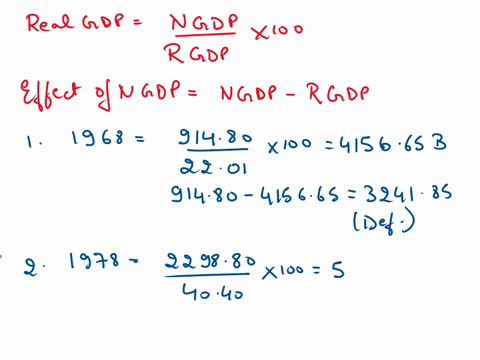 Real GDP = NGDP / RGDP × 100
Effect of NGDP = NGDP - RGDP
1. 1968 = 914.80 / 22.01 × 100 = 4156.65 B
914.80 - 4156.65 = 3241.85
(Def.)
2. 1978 = 2298.80 / 40.40 × 100 = 5